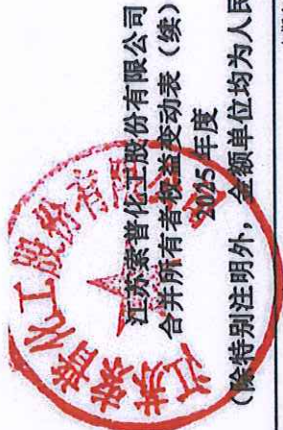 江苏索普化工股份有限公司
合并所有者权益变动表（续）
2025年度
（除特别注明外，金额单位均为人民
江苏索普化工股份有限